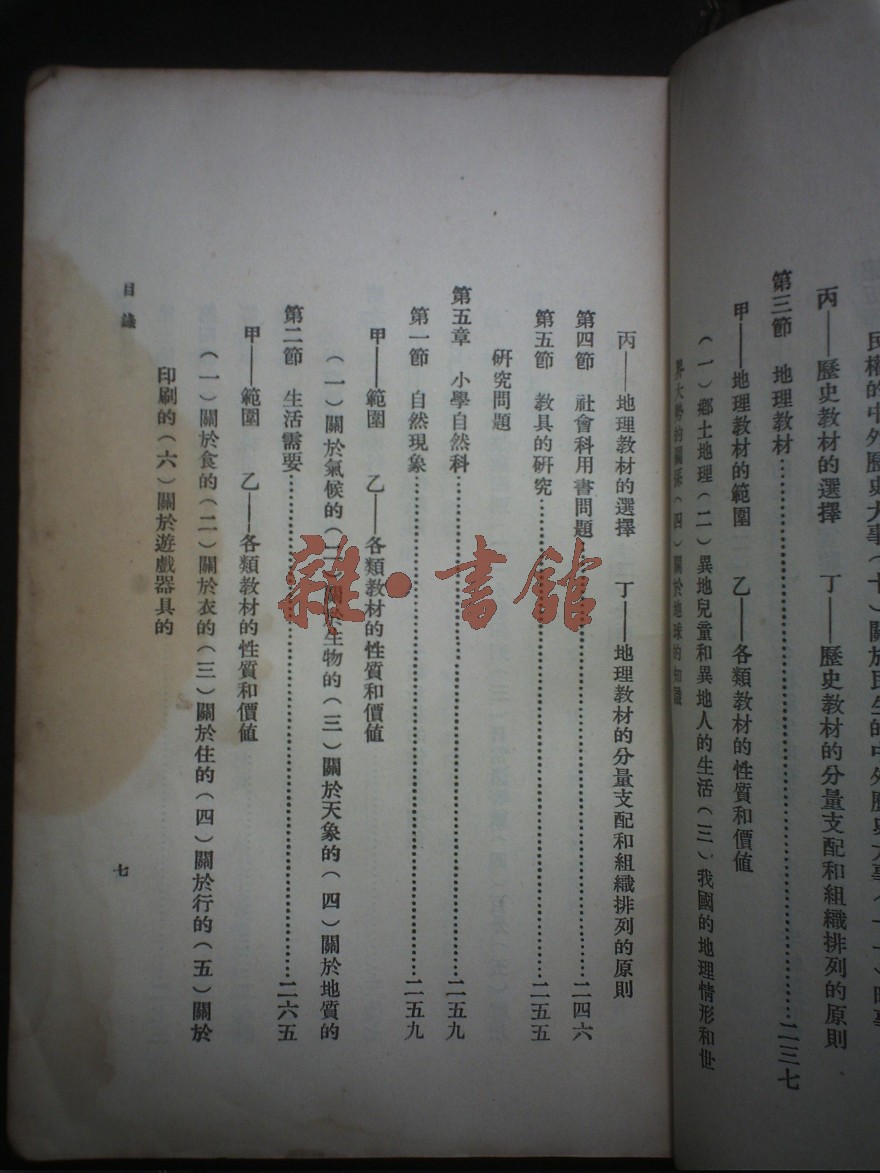 民權的中外歷史大事(十)關於民生的中外歷史大事(十一)時事
丙——歷史教材的選擇 丁——歷史教材的分量支配和組織排列的原則
第三節 地理教材……二三七
甲——地理教材的範圍 乙——各類教材的性質和價值
(一)鄉土地理(二)異地兒童和異地人的生活(三)我國的地理情形和世
界大勢的關係(四)關於地球的知識
丙——地理教材的選擇 丁——地理教材的分量支配和組織排列的原則
第四節 社會科用書問題……二四六
第五節 教具的研究……二五五
研究問題
第五章 小學自然科……二五九
第一節 自然現象……二五九
甲——範圍 乙——各類教材的性質和價值
(一)關於氣候的(二)關於生物的(三)關於天象的(四)關於地質的
第二節 生活需要……二六五
甲——範圍 乙——各類教材的性質和價值
(一)關於食的(二)關於衣的(三)關於住的(四)關於行的(五)關於
印刷的(六)關於遊戲器具的
目錄
七
雜·書館